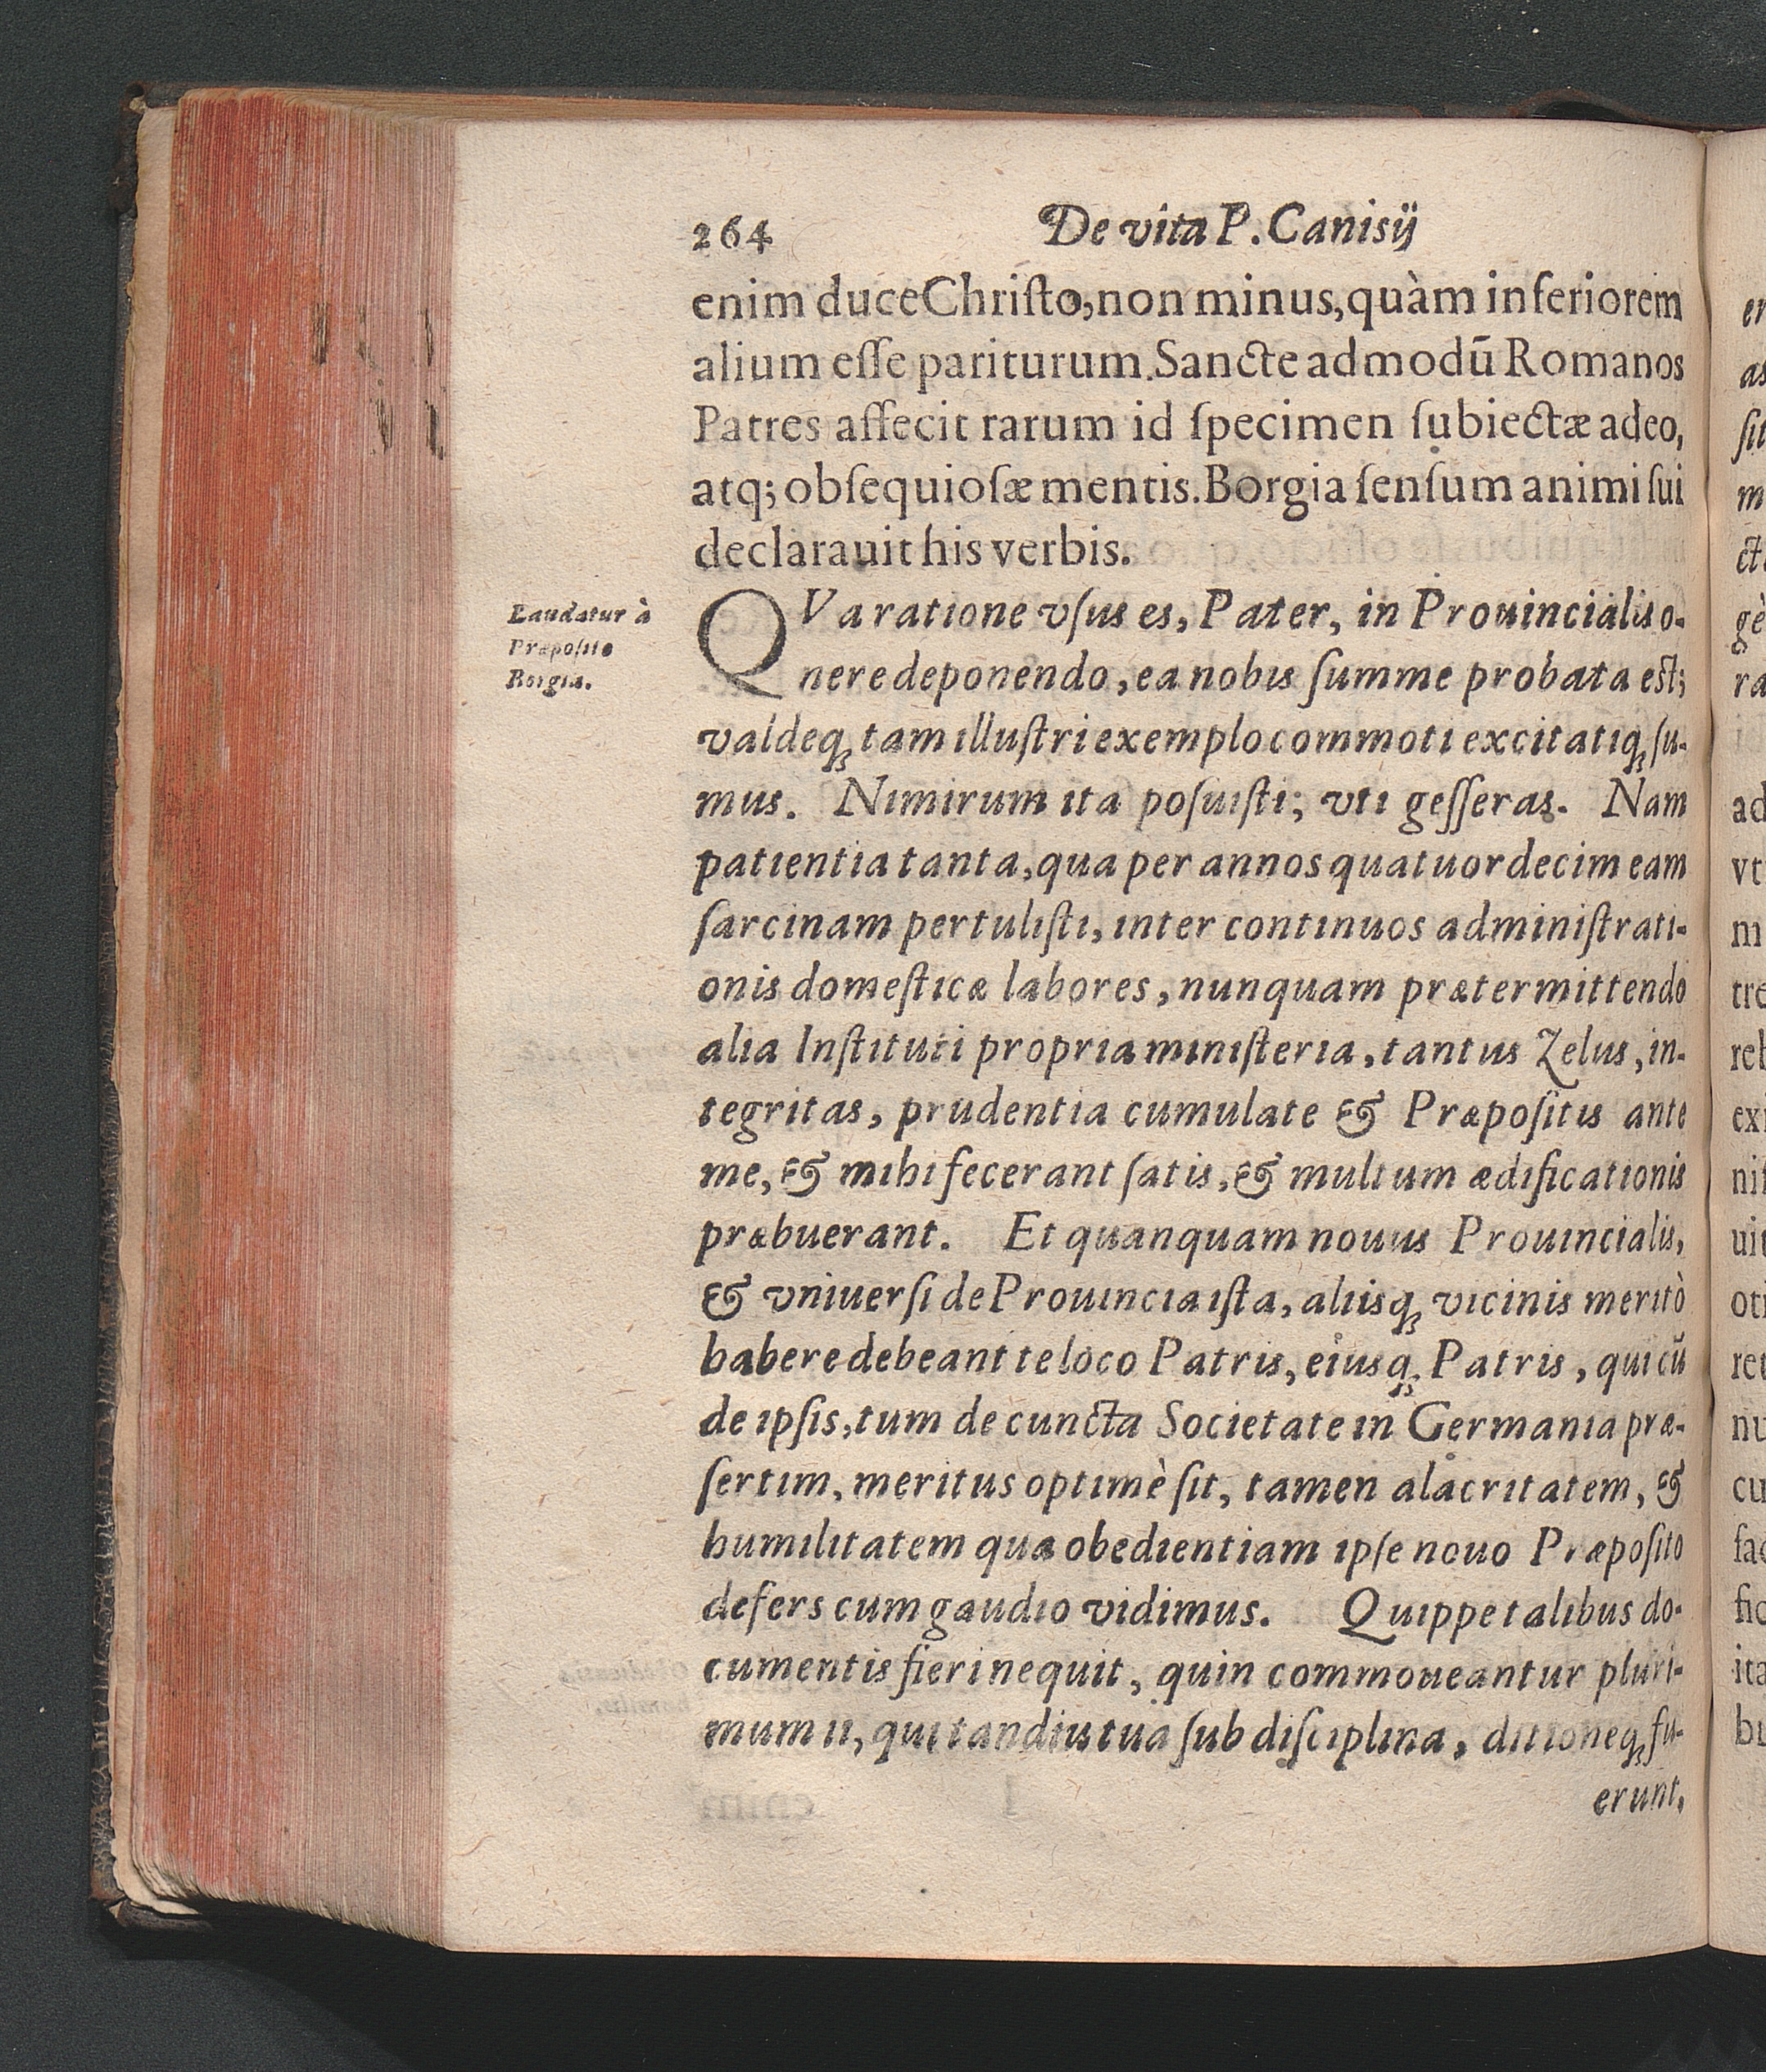 264 De vita P. Canisij
enim duce Christo, non minus, quàm inferiorem
alium esse pariturum. Sancte admodū Romanos
Patres affecit rarum id specimen subiectæ adeo,
atq; obsequiosæ mentis. Borgia sensum animi sui
declarauit his verbis.
Laudatur à
Præposito
Borgia.
QVa ratione vsus es, Pater, in Prouincialis o-
nere deponendo, ea nobis summe probata est;
valdeq; tam illustri exemplo commoti excitatiq; su-
mus. Nimirum ita posuisti; vti gesseras. Nam
patientia tanta, qua per annos quatuordecim eam
sarcinam pertulisti, inter continuos administrati-
onis domesticæ labores, nunquam prætermittendo
alia Instituti propria ministeria, tantus Zelus, in-
tegritas, prudentia cumulate & Præpositis ante
me, & mihi fecerant satis, & multum ædificationis
præbuerant. Et quanquam nouus Prouincialis,
& vniuersi de Prouincia ista, aliisq; vicinis meritò
habere debeant te loco Patris, eiusq; Patris, qui cū
de ipsis, tum de cuncta Societate in Germania præ-
sertim, meritus optimè sit, tamen alacritatem, &
humilitatem qua obedientiam ipse nouo Præposito
defers cum gaudio vidimus. Quippe talibus do-
cumentis fieri nequit, quin commoueantur pluri-
mum ii, qui tandiu tua sub disciplina, ditioneq; fu-
erunt,